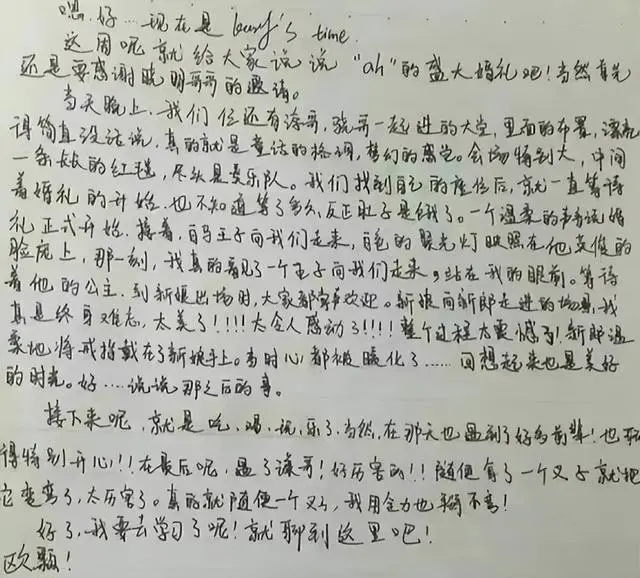 嗯,好…现在是 burf's time.
这周呢就给大家说说"ah"的盛大婚礼吧!当然首先
还是要感谢晓明哥哥的邀请。
当天晚上,我们 还有涛哥,骁哥一起进的大堂,里面的布置,漂亮
得简直没话说,真的就是童话的格调,梦幻的感觉。会场特别大,中间
一条长长的红毯,尽头是奏乐队。我们找到自己的座位后,就一直等待
着婚礼的开始.也不知道等了多久,反正肚子是饿了。一个温柔的声音说婚
礼正式开始.接着,白马王子向我们走来,白色的聚光灯映照在他英俊的
脸庞上,那一刻,我真的看见了一个王子向我们走来,站在我的眼前。等待
着他的公主.到新娘出场时,大家都 欢迎。新娘向新郎走进的场景,我
真是终身难忘,太美了!!!!太令人感动了!!!!整个过程太震撼了!新郎温
柔地将戒指戴在了新娘手上。当时心都被暖化了……回想起来也是美好
的时光。好…..说说那之后的事。
接下来呢,就是吃、喝、玩、乐了.当然,在那天也遇到了好多前辈!也玩
得特别开心!!在最后呢,遇了涛哥!好厉害的!!随便拿了一个叉子就把
它变弯了,太厉害了。真的就随便一个叉子,我用全力也掰不弯!
好了,我要去学习了呢!就聊到这里吧!
欧颗!